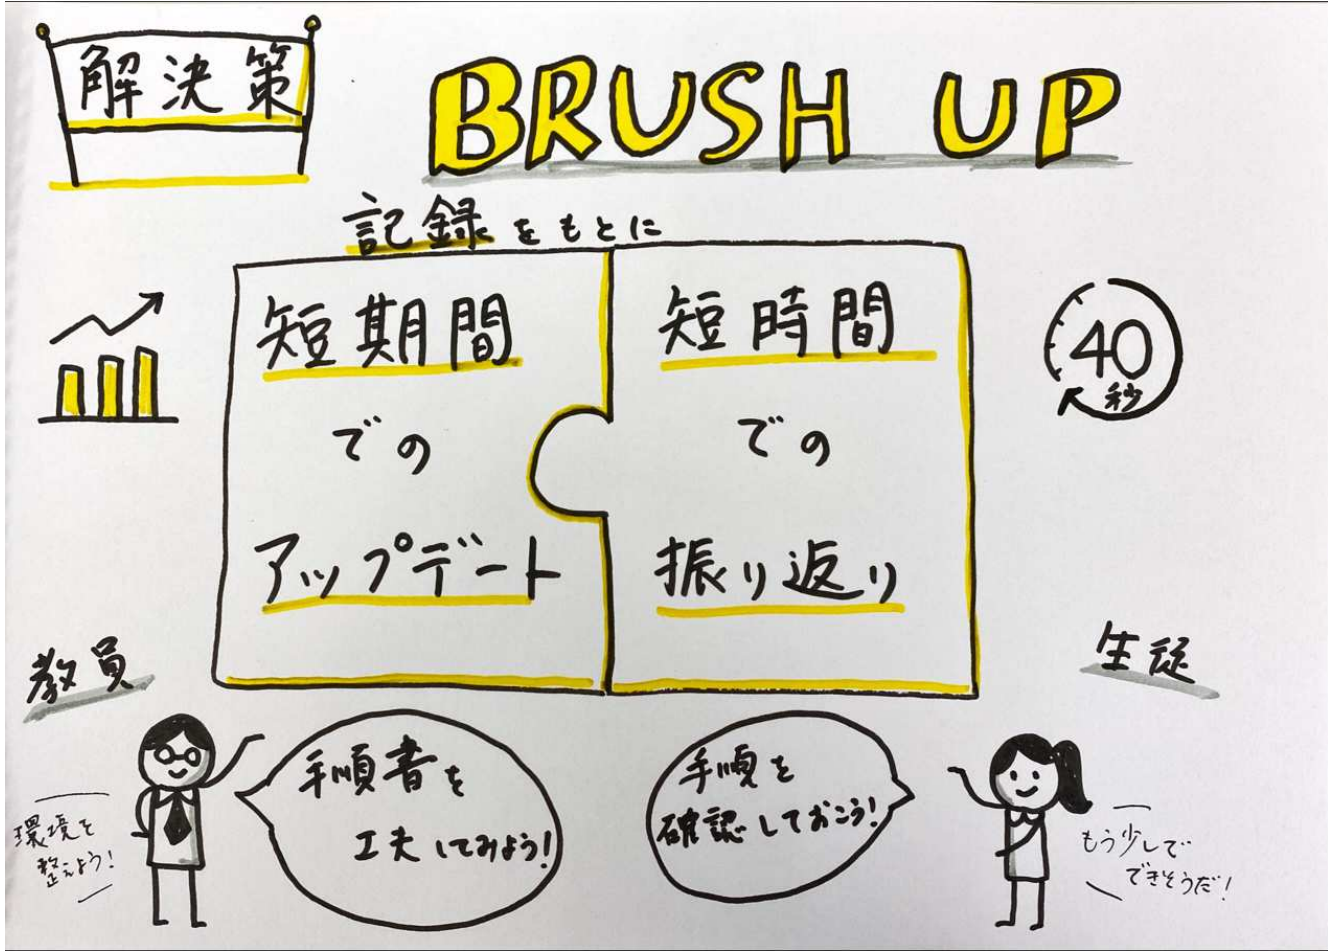 解決策
BRUSH UP
記録をもとに
短期間
での
アップデート
短時間
での
振り返り
40
秒
教員
生徒
手順書を
工夫してみよう!
手順を
確認しておこう!
環境を
整えよう!
もう少しで
できそうだ!